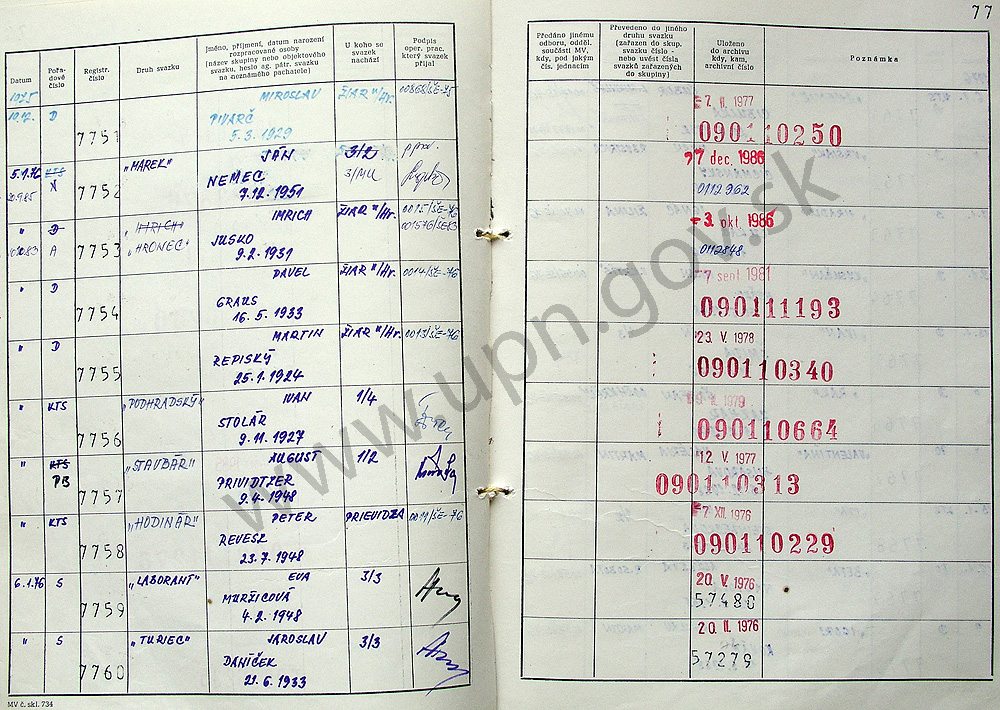 77
Datum
Pořa-
dové
číslo
Registr.
číslo
Druh svazku
Jméno, příjmení, datum narození
rozpracované osoby
(název skupiny nebo objektového
svazku, heslo ag. pátr. svazku
na neznámého pachatele)
U koho se
svazek
nachází
Podpis
oper. prac.
který svazek
přijal
Předáno jinému
odboru, odděl.
součásti MV,
kdy, pod jakým
čís. jednacím
Převedeno do jiného
druhu svazku
(zařazen do skup.
svazku číslo -
nebo uvést čísla
svazků zařazených
do skupiny)
Uloženo
do archivu
kdy, kam,
archivní číslo
Poznámka
1975
10.12. D 7751
MIROSLAV
PIVARČ
5.3.1929
ŽIAR n/Hr.
7. II. 1977
090110250
5.1.76 KTS
N 7752
„MAREK"
JÁN
NEMEC
7.12.1951
3/2
3/MU
dec. 1986
0112962
" D
A 7753
„IMRICH"
„HRONEC"
IMRICH
JUSKO
9.2.1931
ŽIAR n/Hr.
0015/ŠE-76
001576/ŠE-83
3. okt. 1986
0112848
" D 7754
PAVEL
GRAUS
16.5.1933
ŽIAR n/Hr.
0014/ŠE-76
7 sept 1981
090111193
" D 7755
MARTIN
REPISKÝ
25.1.1924
ŽIAR n/Hr.
0013/ŠE-76
23. V. 1978
090110340
" KTS 7756
„PODHRADSKÝ"
IVAN
STOLÁR
9.11.1927
1/4
1979
090110664
" KTS
PB 7757
„STAVBÁR"
AUGUST
PRIVIDTZER
9.4.1948
1/2
12. V. 1977
090110313
" KTS 7758
„HODINÁR"
PETER
REVESZ
23.7.1948
PRIEVIDZA
0011/ŠE-76
7 XII. 1976
090110229
6.1.76 S 7759
„LABORANT"
EVA
MURŽICOVÁ
4.2.1948
3/3
20. V. 1976
57480
" S 7760
„TURIEC"
JAROSLAV
DANÍČEK
21.6.1933
3/3
20. II. 1976
57279
MV č. skl. 734
www.upn.gov.sk